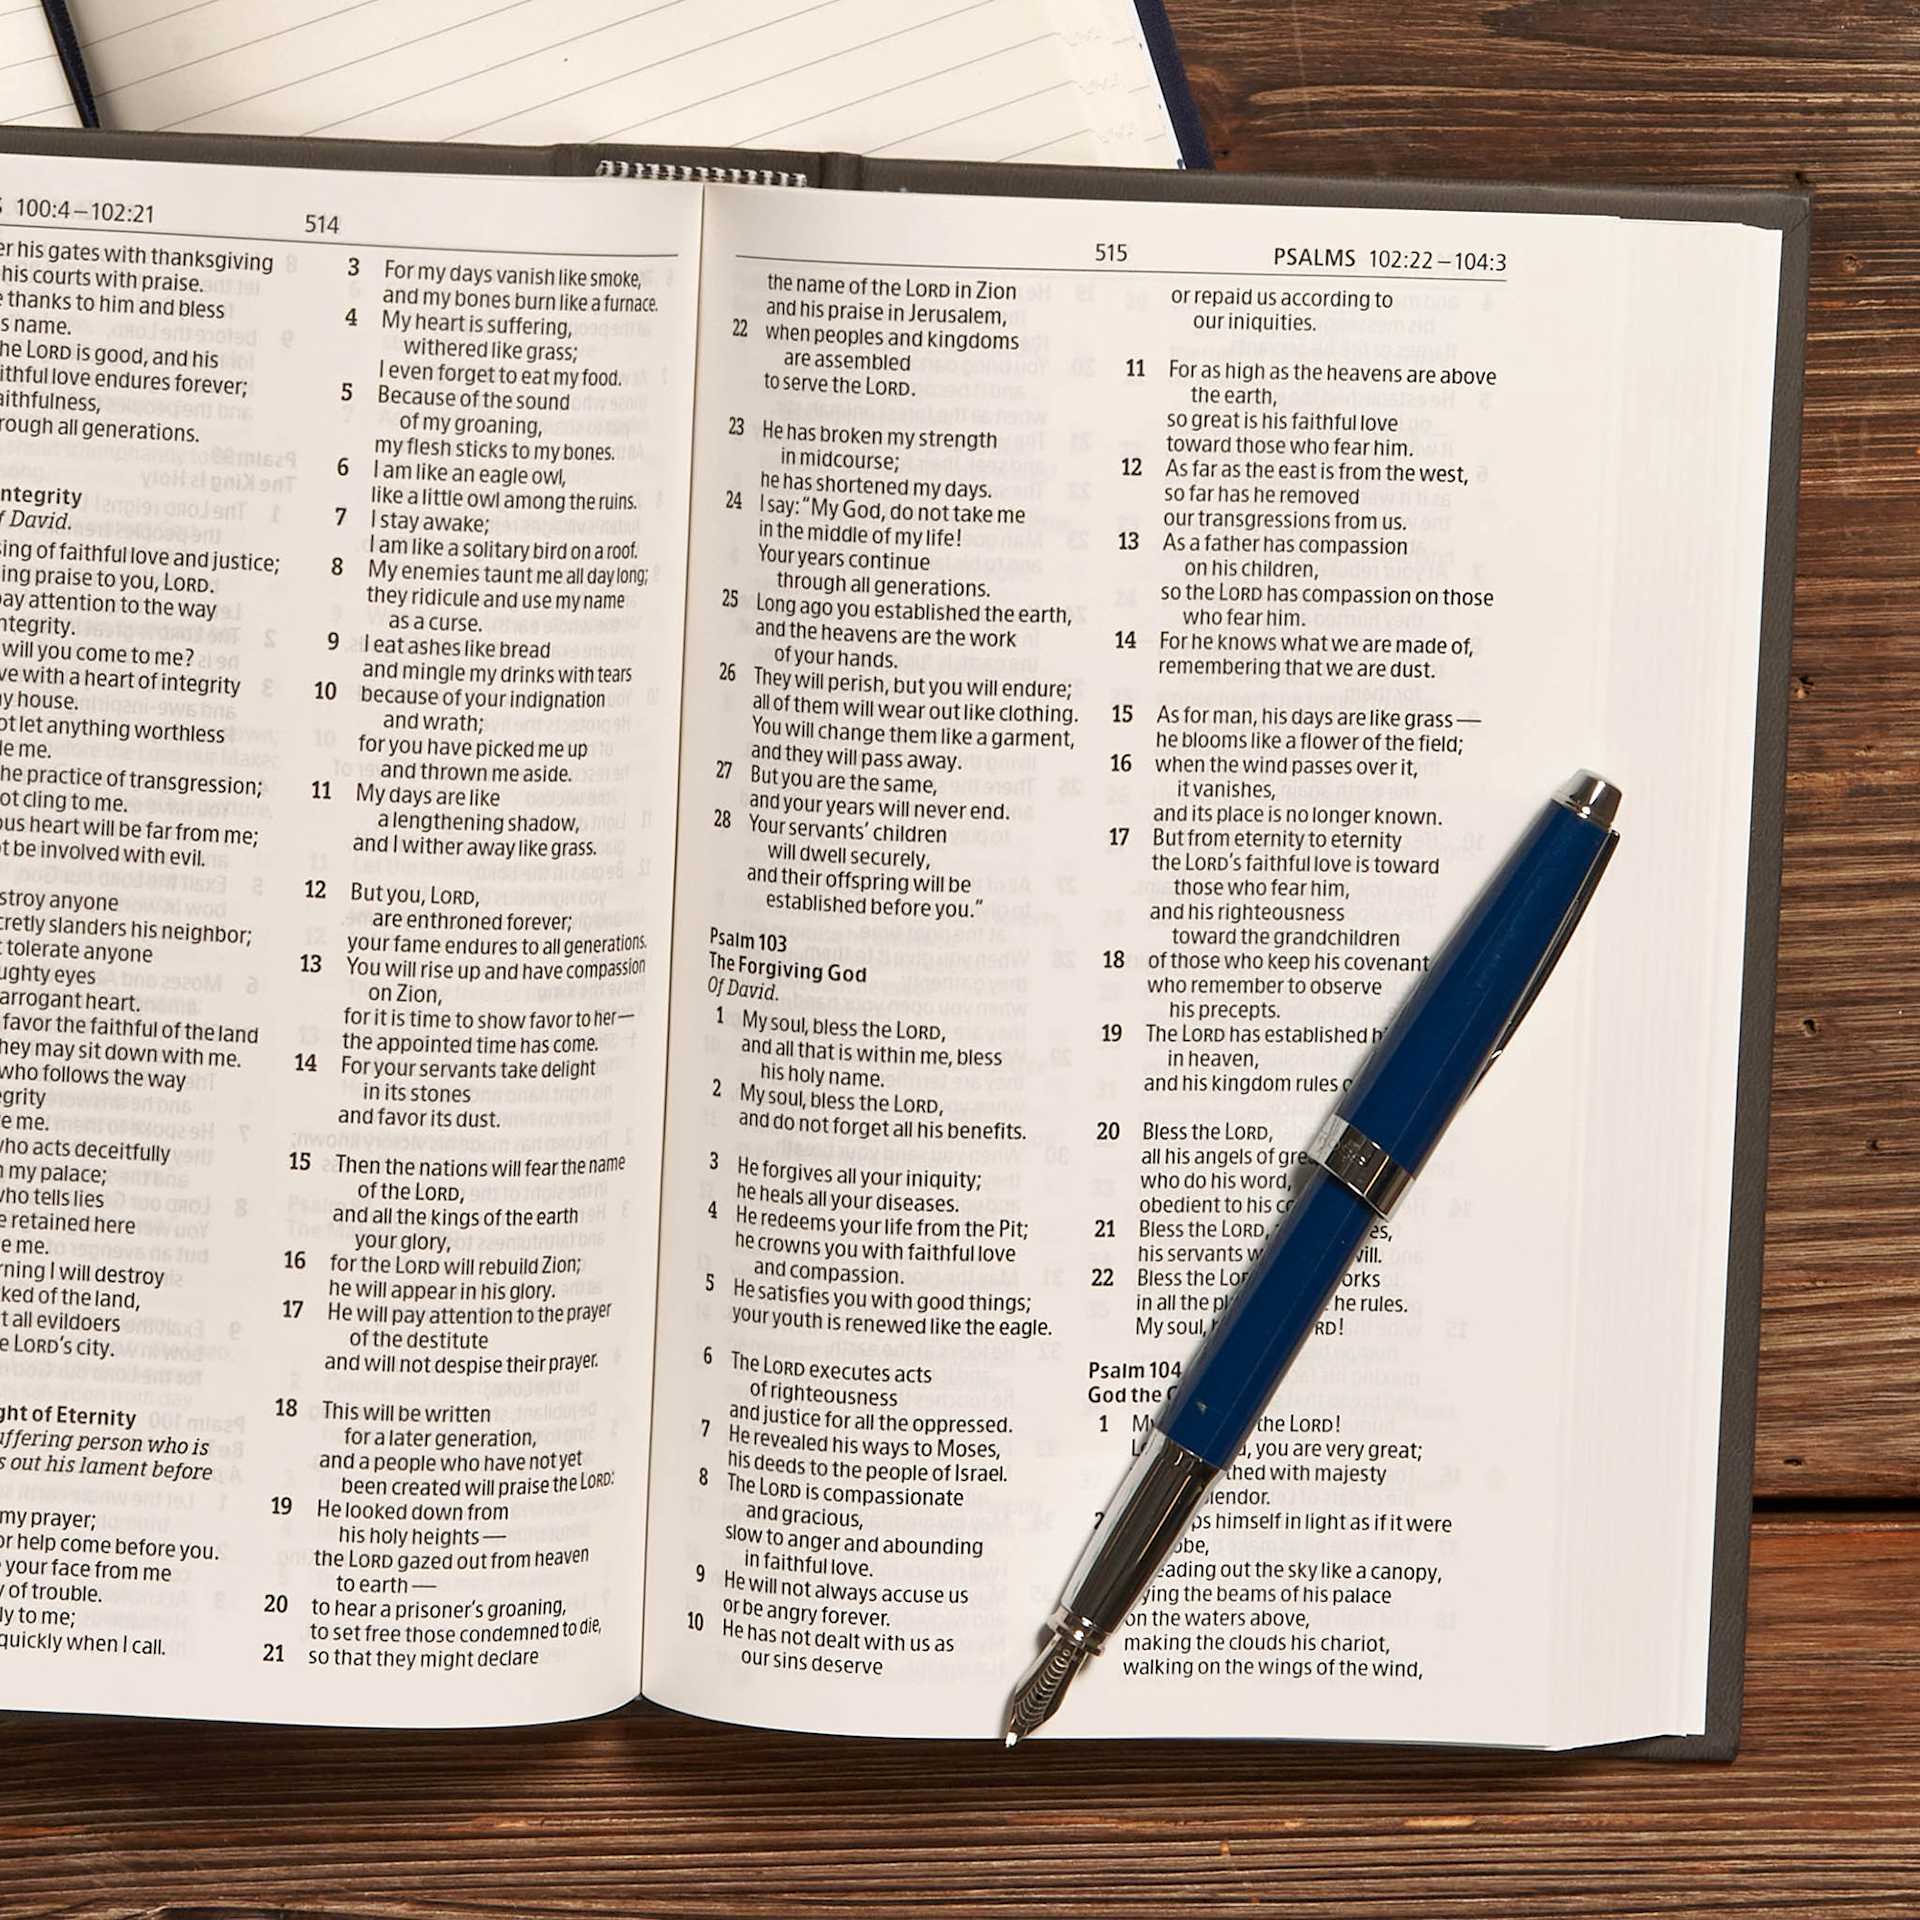 100:4–102:21
514
er his gates with thanksgiving
his courts with praise.
e thanks to him and bless
s name.
he LORD is good, and his
ithful love endures forever;
aithfulness,
rough all generations.
ntegrity
f David.
ing of faithful love and justice;
ing praise to you, LORD.
pay attention to the way
ntegrity.
will you come to me?
ve with a heart of integrity
y house.
ot let anything worthless
le me.
he practice of transgression;
ot cling to me.
ous heart will be far from me;
t be involved with evil.
stroy anyone
cretly slanders his neighbor;
t tolerate anyone
ughty eyes
arrogant heart.
favor the faithful of the land
hey may sit down with me.
who follows the way
egrity
e me.
who acts deceitfully
n my palace;
who tells lies
e retained here
e me.
rning I will destroy
ked of the land,
t all evildoers
e LORD's city.
ght of Eternity
uffering person who is
s out his lament before
my prayer;
or help come before you.
your face from me
y of trouble.
ly to me;
quickly when I call.
3 For my days vanish like smoke,
and my bones burn like a furnace.
4 My heart is suffering,
withered like grass;
I even forget to eat my food.
5 Because of the sound
of my groaning,
my flesh sticks to my bones.
6 I am like an eagle owl,
like a little owl among the ruins.
7 I stay awake;
I am like a solitary bird on a roof.
8 My enemies taunt me all day long;
they ridicule and use my name
as a curse.
9 I eat ashes like bread
and mingle my drinks with tears
10 because of your indignation
and wrath;
for you have picked me up
and thrown me aside.
11 My days are like
a lengthening shadow,
and I wither away like grass.
12 But you, LORD,
are enthroned forever;
your fame endures to all generations.
13 You will rise up and have compassion
on Zion,
for it is time to show favor to her—
the appointed time has come.
14 For your servants take delight
in its stones
and favor its dust.
15 Then the nations will fear the name
of the LORD,
and all the kings of the earth
your glory,
16 for the LORD will rebuild Zion;
he will appear in his glory.
17 He will pay attention to the prayer
of the destitute
and will not despise their prayer.
18 This will be written
for a later generation,
and a people who have not yet
been created will praise the LORD:
19 He looked down from
his holy heights—
the LORD gazed out from heaven
to earth—
20 to hear a prisoner's groaning,
to set free those condemned to die,
21 so that they might declare
515
PSALMS 102:22–104:3
the name of the LORD in Zion
and his praise in Jerusalem,
22 when peoples and kingdoms
are assembled
to serve the LORD.
23 He has broken my strength
in midcourse;
he has shortened my days.
24 I say: “My God, do not take me
in the middle of my life!
Your years continue
through all generations.
25 Long ago you established the earth,
and the heavens are the work
of your hands.
26 They will perish, but you will endure;
all of them will wear out like clothing.
You will change them like a garment,
and they will pass away.
27 But you are the same,
and your years will never end.
28 Your servants' children
will dwell securely,
and their offspring will be
established before you.”
Psalm 103
The Forgiving God
Of David.
1 My soul, bless the LORD,
and all that is within me, bless
his holy name.
2 My soul, bless the LORD,
and do not forget all his benefits.
3 He forgives all your iniquity;
he heals all your diseases.
4 He redeems your life from the Pit;
he crowns you with faithful love
and compassion.
5 He satisfies you with good things;
your youth is renewed like the eagle.
6 The LORD executes acts
of righteousness
and justice for all the oppressed.
7 He revealed his ways to Moses,
his deeds to the people of Israel.
8 The LORD is compassionate
and gracious,
slow to anger and abounding
in faithful love.
9 He will not always accuse us
or be angry forever.
10 He has not dealt with us as
our sins deserve
or repaid us according to
our iniquities.
11 For as high as the heavens are above
the earth,
so great is his faithful love
toward those who fear him.
12 As far as the east is from the west,
so far has he removed
our transgressions from us.
13 As a father has compassion
on his children,
so the LORD has compassion on those
who fear him.
14 For he knows what we are made of,
remembering that we are dust.
15 As for man, his days are like grass—
he blooms like a flower of the field;
16 when the wind passes over it,
it vanishes,
and its place is no longer known.
17 But from eternity to eternity
the LORD's faithful love is toward
those who fear him,
and his righteousness
toward the grandchildren
18 of those who keep his covenant,
who remember to observe
his precepts.
19 The LORD has established
in heaven,
and his kingdom rules
20 Bless the LORD,
all his angels of
who do his word,
obedient to his
21 Bless the LORD,
his servants
22 Bless the
in all the he rules.
My soul,
Psalm 104
God the
1 the LORD!
you are very great;
with majesty
himself in light as if it were
out the sky like a canopy,
the beams of his palace
on the waters above,
making the clouds his chariot,
walking on the wings of the wind,